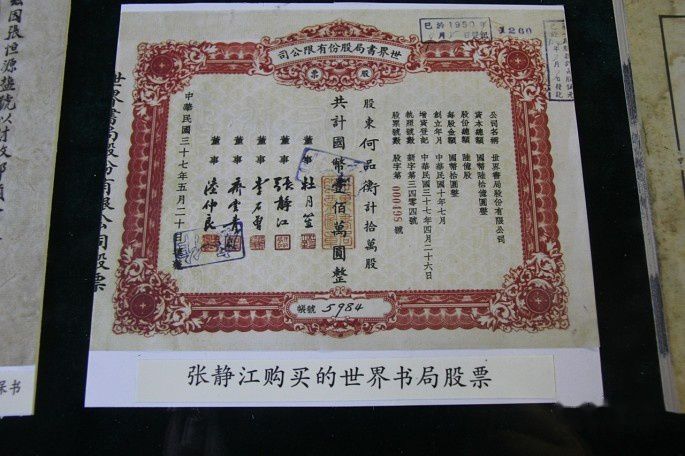 已於1950年
1260
世界書局股份有限公司
股票
公司名稱　世界書局股份有限公司
資本總額　國幣陸拾億圓整
股份總額　陸億股
每股金額　國幣拾圓整
創立年月　中華民國十年七月
增資登記　中華民國三十七年四月二十六日
執照號數　新字第三四零四號
股票號數　股字第000498號
股東何品衡計拾萬股
共計國幣壹佰萬圓整
董事　杜月笙
董事　張靜江
董事　李石曾
董事　齊雲青
董事　陸仲良
中華民國三十七年五月二十日
世界書局股份有限公司股票
帳號 5984
张静江购买的世界书局股票
保书